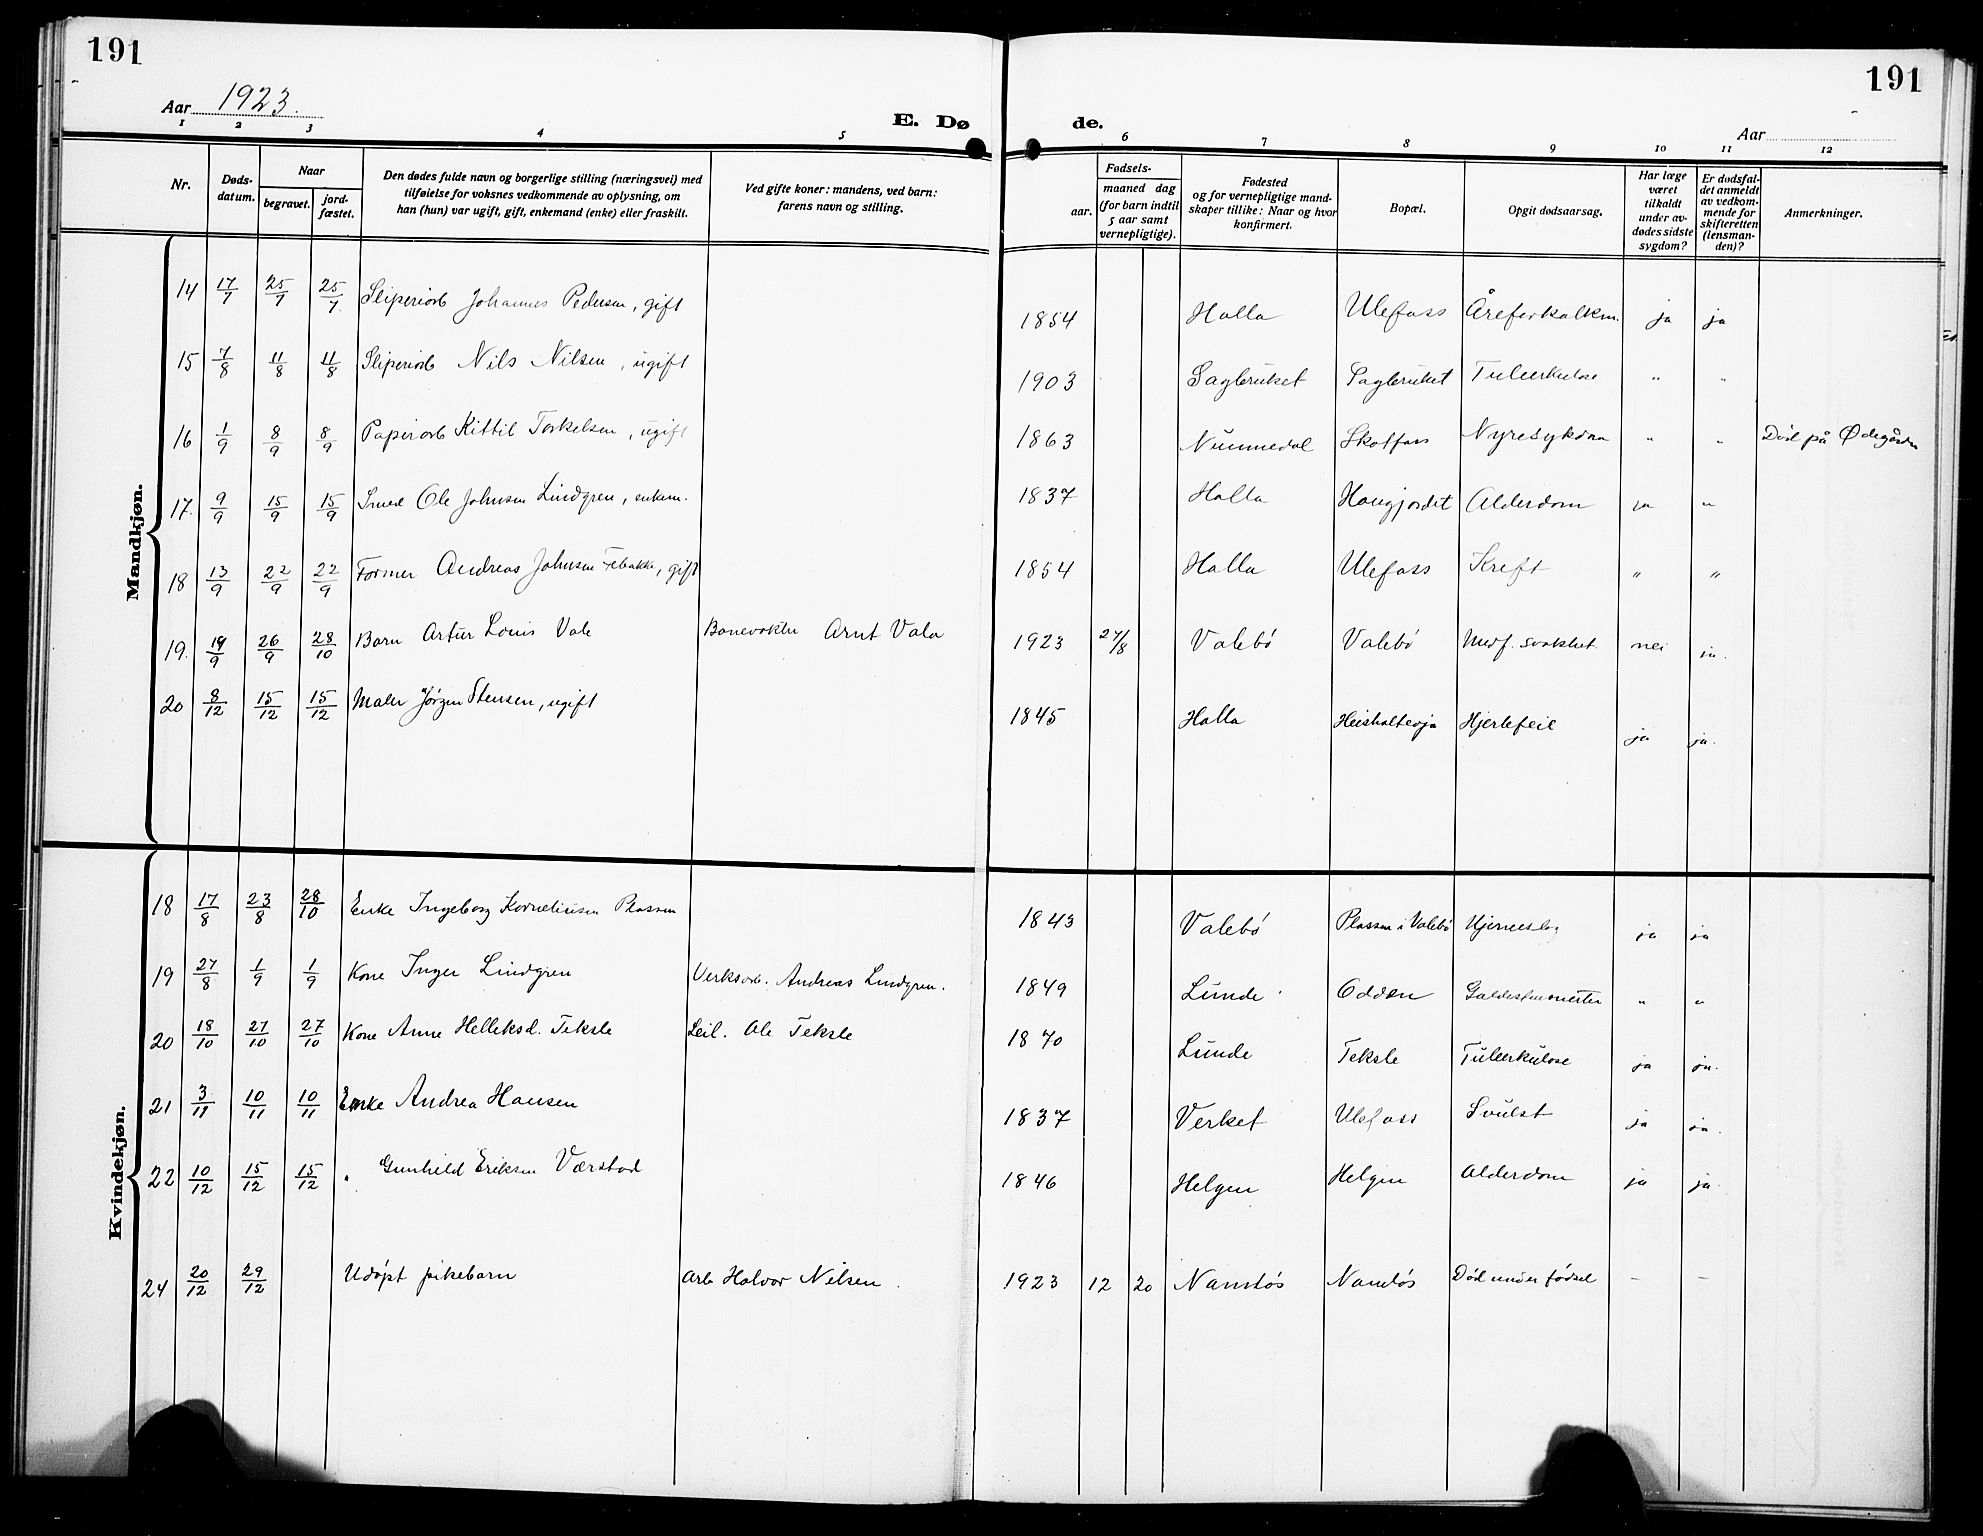 191
191
Aar 1923.
E. Dø
de.
Aar
1 2 3 4 5 6 7 8 9 10 11 12
Nr.
Døds-
datum.
Naar
begravet.
jord-
fæstet.
Den dødes fulde navn og borgerlige stilling (næringsvei) med
tilføielse for voksnes vedkommende av oplysning, om
han (hun) var ugift, gift, enkemand (enke) eller fraskilt.
Ved gifte koner: mandens, ved barn:
farens navn og stilling.
Fødsels-
aar.
maaned dag
(for barn indtil
5 aar samt
vernepligtige).
Fødested
og for vernepligtige mand-
skaper tillike: Naar og hvor
konfirmert.
Bopæl.
Opgit dødsaarsag.
Har læge
været
tilkaldt
under av-
dødes sidste
sygdom?
Er dødsfal-
det anmeldt
av vedkom-
mende for
skifteretten
(lensman-
den)?
Anmerkninger.
Mandkjøn.
14 17/7 25/7 25/7. Sliperiarb Johannes Pedersen, gift 1854 Holla Ulefoss Åreforkalkn. ja ja
15 7/8 11/8 11/8 Sliperiarb Nils Nilsen, ugift 1903 Sagbruket Sagbruket Tuberkulose " "
16 1/9 8/9 8/9 Papirarb Kittil Torkelsen, ugift 1863 Nummedal Skotfoss Nyresykdom " " Död på Ødegården
17. 9/9 15/9 15/9 Smed Ole Johnsen Lindgren, enkem. 1837 Holla Haugjordet Alderdom ja "
18 13/9 22/9 22/9 Former Andreas Johnsen, gift 1854 Holla Ulefoss Kreft " "
19. 19/9 26/9 28/10 Barn Artur Louis Vale Banevokter Arnt Vala 1923 27/8 Valebö Valebö Medf. svakhet. nei ja.
20 8/12 15/12 15/12 Maler Jörgen Stensen, ugift 1845 Holla Heisholtevja Hjertefeil ja ja.
Kvindekjøn.
18 17/8 23/8 28/10 Enke Ingeborg Korneliusen Plassen 1843 Valebö Plassen i Valebö Hjerneslag ja ja
19 27/8 1/9 1/9 Kone Inger Lindgren Verksarb. Andreas Lindgren. 1849 Lunde Odden " "
20 18/10 27/10 27/10 Kone Anne Helleksd. Teksle Leil. Ole Teksle 1870 Lunde Teksle Tuberkulose ja ja.
21 3/11 10/11 10/11 Enke Andrea Hansen 1837 Verket Ulefoss Svulst ja ja.
22 10/12 15/12 15/12 " Gunhild Eriksen Værstad 1846 Helgen Helgen Alderdom ja ja.
24 20/12 29/12 Udöpt pikebarn Arb Halvor Nilsen. 1923 12 20 Namlös Namlös Död under födsel – –